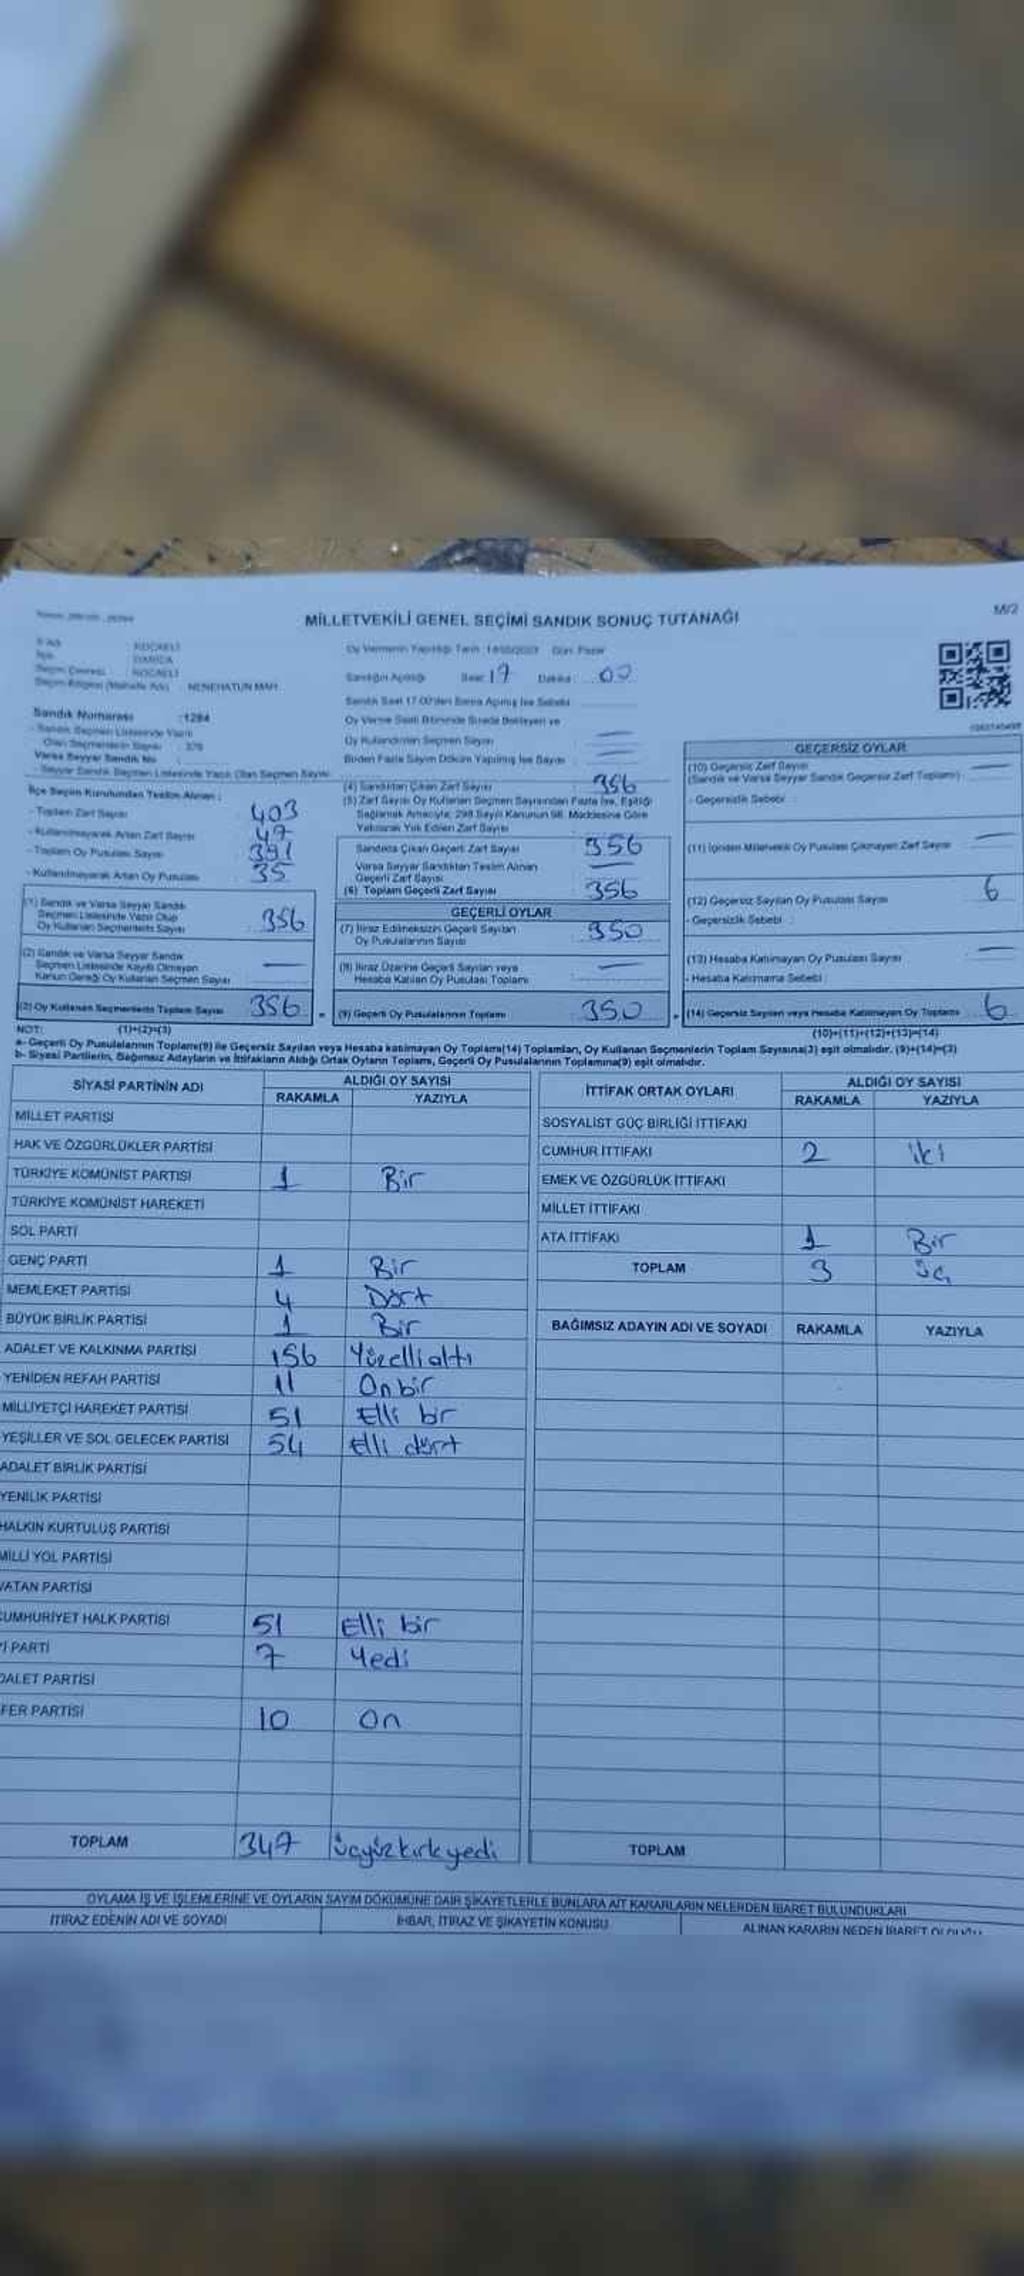 MİLLETVEKİLİ GENEL SEÇİMİ SANDIK SONUÇ TUTANAĞI
M/2
: KOCAELİ
: DARICA
: KOCAELİ
NENEHATUN MAH.
Oy Vermenin Yapıldığı Tarih : 14/05/2023 Gün: Pazar
Sandığın Açıldığı Saat: 17 Dakika : 00
Sandık Saat 17.00'den Sonra Açılmış İse Sebebi
Oy Verme Saati Bitiminde Sırada Bekleyen ve
Oy Kullandırılan Seçmen Sayısı
Birden Fazla Sayım Döküm Yapılmış İse Sayısı
Sandık Numarası : 1284
- Sandık Seçmen Listesinde Yazılı
Olan Seçmenlerin Sayısı
Varsa Seyyar Sandık No
- Seyyar Sandık Seçmen Listesinde Yazılı Olan Seçmen Sayısı
İlçe Seçim Kurulundan Teslim Alınan :
- Toplam Zarf Sayısı 403
- Kullanılmayarak Artan Zarf Sayısı 47
- Toplam Oy Pusulası Sayısı 391
- Kullanılmayarak Artan Oy Pusulası 35
(1) Sandık ve Varsa Seyyar Sandık
Seçmen Listesinde Yazılı Olup
Oy Kullanan Seçmenlerin Sayısı 356
(2) Sandık ve Varsa Seyyar Sandık
Seçmen Listesinde Kayıtlı Olmayan
Kanun Gereği Oy Kullanan Seçmen Sayısı
(3) Oy Kullanan Seçmenlerin Toplam Sayısı 356
(4) Sandıktan Çıkan Zarf Sayısı 356
(5) Zarf Sayısı Oy Kullanan Seçmen Sayısından Fazla İse, Eşitliği
Sağlamak Amacıyla, 298 Sayılı Kanunun 98. Maddesine Göre
Yakılarak Yok Edilen Zarf Sayısı
Sandıkta Çıkan Geçerli Zarf Sayısı 356
Varsa Seyyar Sandıktan Teslim Alınan
Geçerli Zarf Sayısı
(6) Toplam Geçerli Zarf Sayısı 356
GEÇERLİ OYLAR
(7) İtiraz Edilmeksizin Geçerli Sayılan
Oy Pusulalarının Sayısı 350
(8) İtiraz Üzerine Geçerli Sayılan veya
Hesaba Katılan Oy Pusulası Toplamı
(9) Geçerli Oy Pusulalarının Toplamı 350
GEÇERSİZ OYLAR
(10) Geçersiz Zarf Sayısı
(Sandık ve Varsa Seyyar Sandık Geçersiz Zarf Toplamı)
- Geçersizlik Sebebi :
(11) İçinden Milletvekili Oy Pusulası Çıkmayan Zarf Sayısı
(12) Geçersiz Sayılan Oy Pusulası Sayısı 6
- Geçersizlik Sebebi :
(13) Hesaba Katılmayan Oy Pusulası Sayısı
- Hesaba Katılmama Sebebi :
(14) Geçersiz Sayılan veya Hesaba Katılmayan Oy Toplamı 6
NOT: (1)+(2)=(3) (10)+(11)+(12)+(13)=(14)
a- Geçerli Oy Pusulalarının Toplamı(9) ile Geçersiz Sayılan veya Hesaba katılmayan Oy Toplamı(14) Toplamları, Oy Kullanan Seçmenlerin Toplam Sayısına(3) eşit olmalıdır. (9)+(14)=(3)
b- Siyasi Partilerin, Bağımsız Adayların ve İttifakların Aldığı Ortak Oyların Toplamı, Geçerli Oy Pusulalarının Toplamına(9) eşit olmalıdır.
SİYASİ PARTİNİN ADI ALDIĞI OY SAYISI
RAKAMLA YAZIYLA
MİLLET PARTİSİ
HAK VE ÖZGÜRLÜKLER PARTİSİ
TÜRKİYE KOMÜNİST PARTİSİ 1 Bir
TÜRKİYE KOMÜNİST HAREKETİ
SOL PARTİ
GENÇ PARTİ 1 Bir
MEMLEKET PARTİSİ 4 Dört
BÜYÜK BİRLİK PARTİSİ 1 Bir
ADALET VE KALKINMA PARTİSİ 156 Yüzellialtı
YENİDEN REFAH PARTİSİ 11 Onbir
MİLLİYETÇİ HAREKET PARTİSİ 51 Elli bir
YEŞİLLER VE SOL GELECEK PARTİSİ 54 Elli dört
ADALET BİRLİK PARTİSİ
YENİLİK PARTİSİ
HALKIN KURTULUŞ PARTİSİ
MİLLİ YOL PARTİSİ
VATAN PARTİSİ
CUMHURİYET HALK PARTİSİ 51 Elli bir
İ PARTİ 7 Yedi
DALET PARTİSİ
FER PARTİSİ 10 On
TOPLAM 347 üçyüzkırkyedi
İTTİFAK ORTAK OYLARI ALDIĞI OY SAYISI
RAKAMLA YAZIYLA
SOSYALİST GÜÇ BİRLİĞİ İTTİFAKI
CUMHUR İTTİFAKI 2 iki
EMEK VE ÖZGÜRLÜK İTTİFAKI
MİLLET İTTİFAKI
ATA İTTİFAKI 1 Bir
TOPLAM 3 üç
BAĞIMSIZ ADAYIN ADI VE SOYADI RAKAMLA YAZIYLA
TOPLAM
OYLAMA İŞ VE İŞLEMLERİNE VE OYLARIN SAYIM DÖKÜMÜNE DAİR ŞİKAYETLERLE BUNLARA AİT KARARLARIN NELERDEN İBARET BULUNDUKLARI
İTİRAZ EDENİN ADI VE SOYADI İHBAR, İTİRAZ VE ŞİKAYETİN KONUSU ALINAN KARARIN NEDEN İBARET OLDUĞU